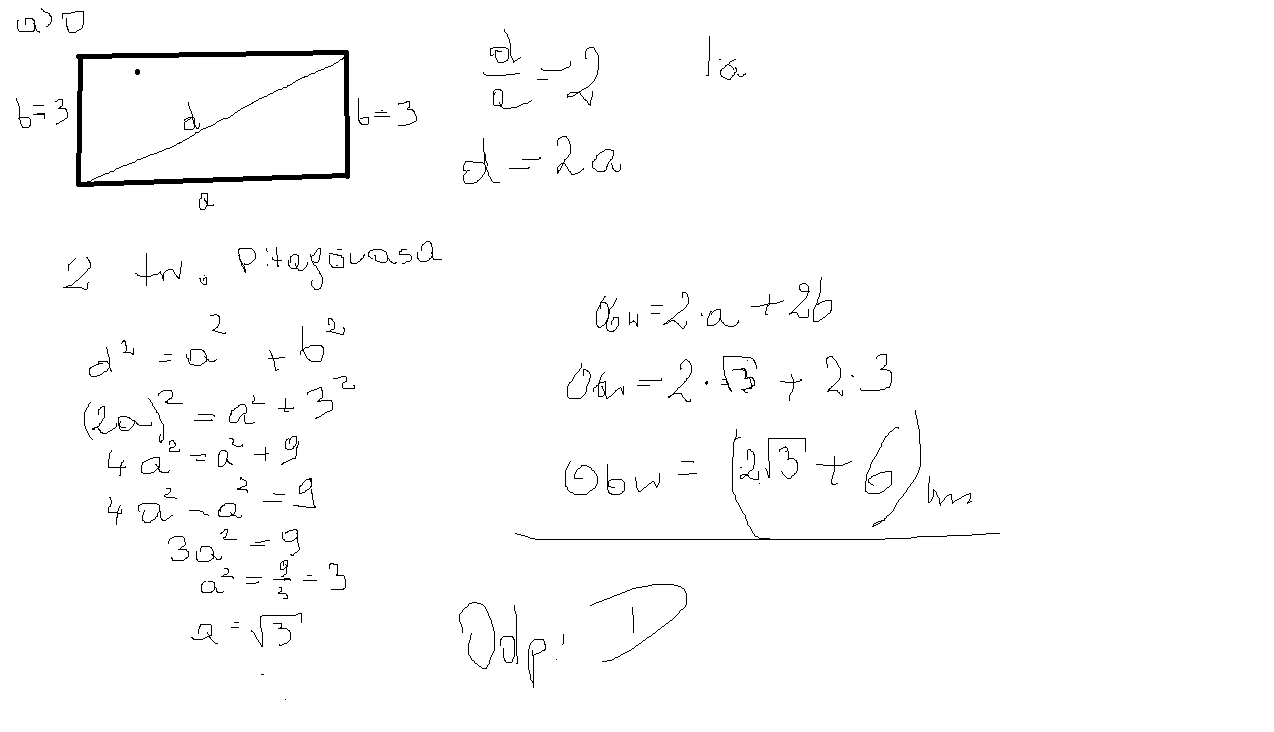 a)
b=3
d
b=3
a
d/a = 2
d = 2a
1a
z tw. Pitagorasa
d² = a² + b²
(2a)² = a² + 3²
4a² = a² + 9
4a² - a² = 9
3a² = 9
a² = 9/3 = 3
a = √3
Obw = 2·a + 2b
Obw = 2·√3 + 2·3
Obw = (2√3 + 6)
Odp: D